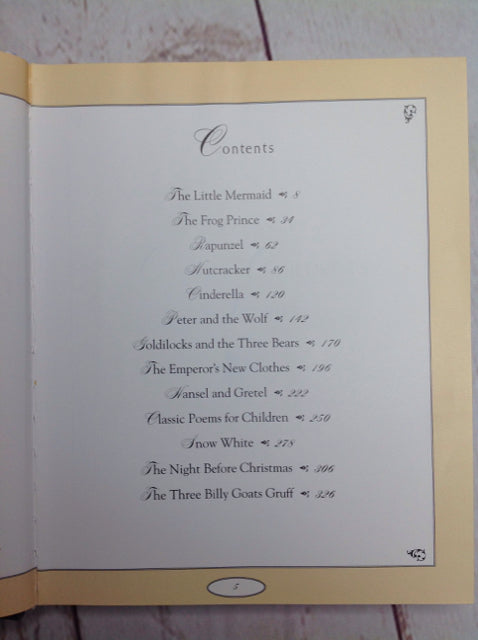 Contents
The Little Mermaid 8
The Frog Prince 34
Rapunzel 62
Nutcracker 86
Cinderella 120
Peter and the Wolf 142
Goldilocks and the Three Bears 170
The Emperor's New Clothes 196
Hansel and Gretel 222
Classic Poems for Children 250
Snow White 278
The Night Before Christmas 306
The Three Billy Goats Gruff 326
5